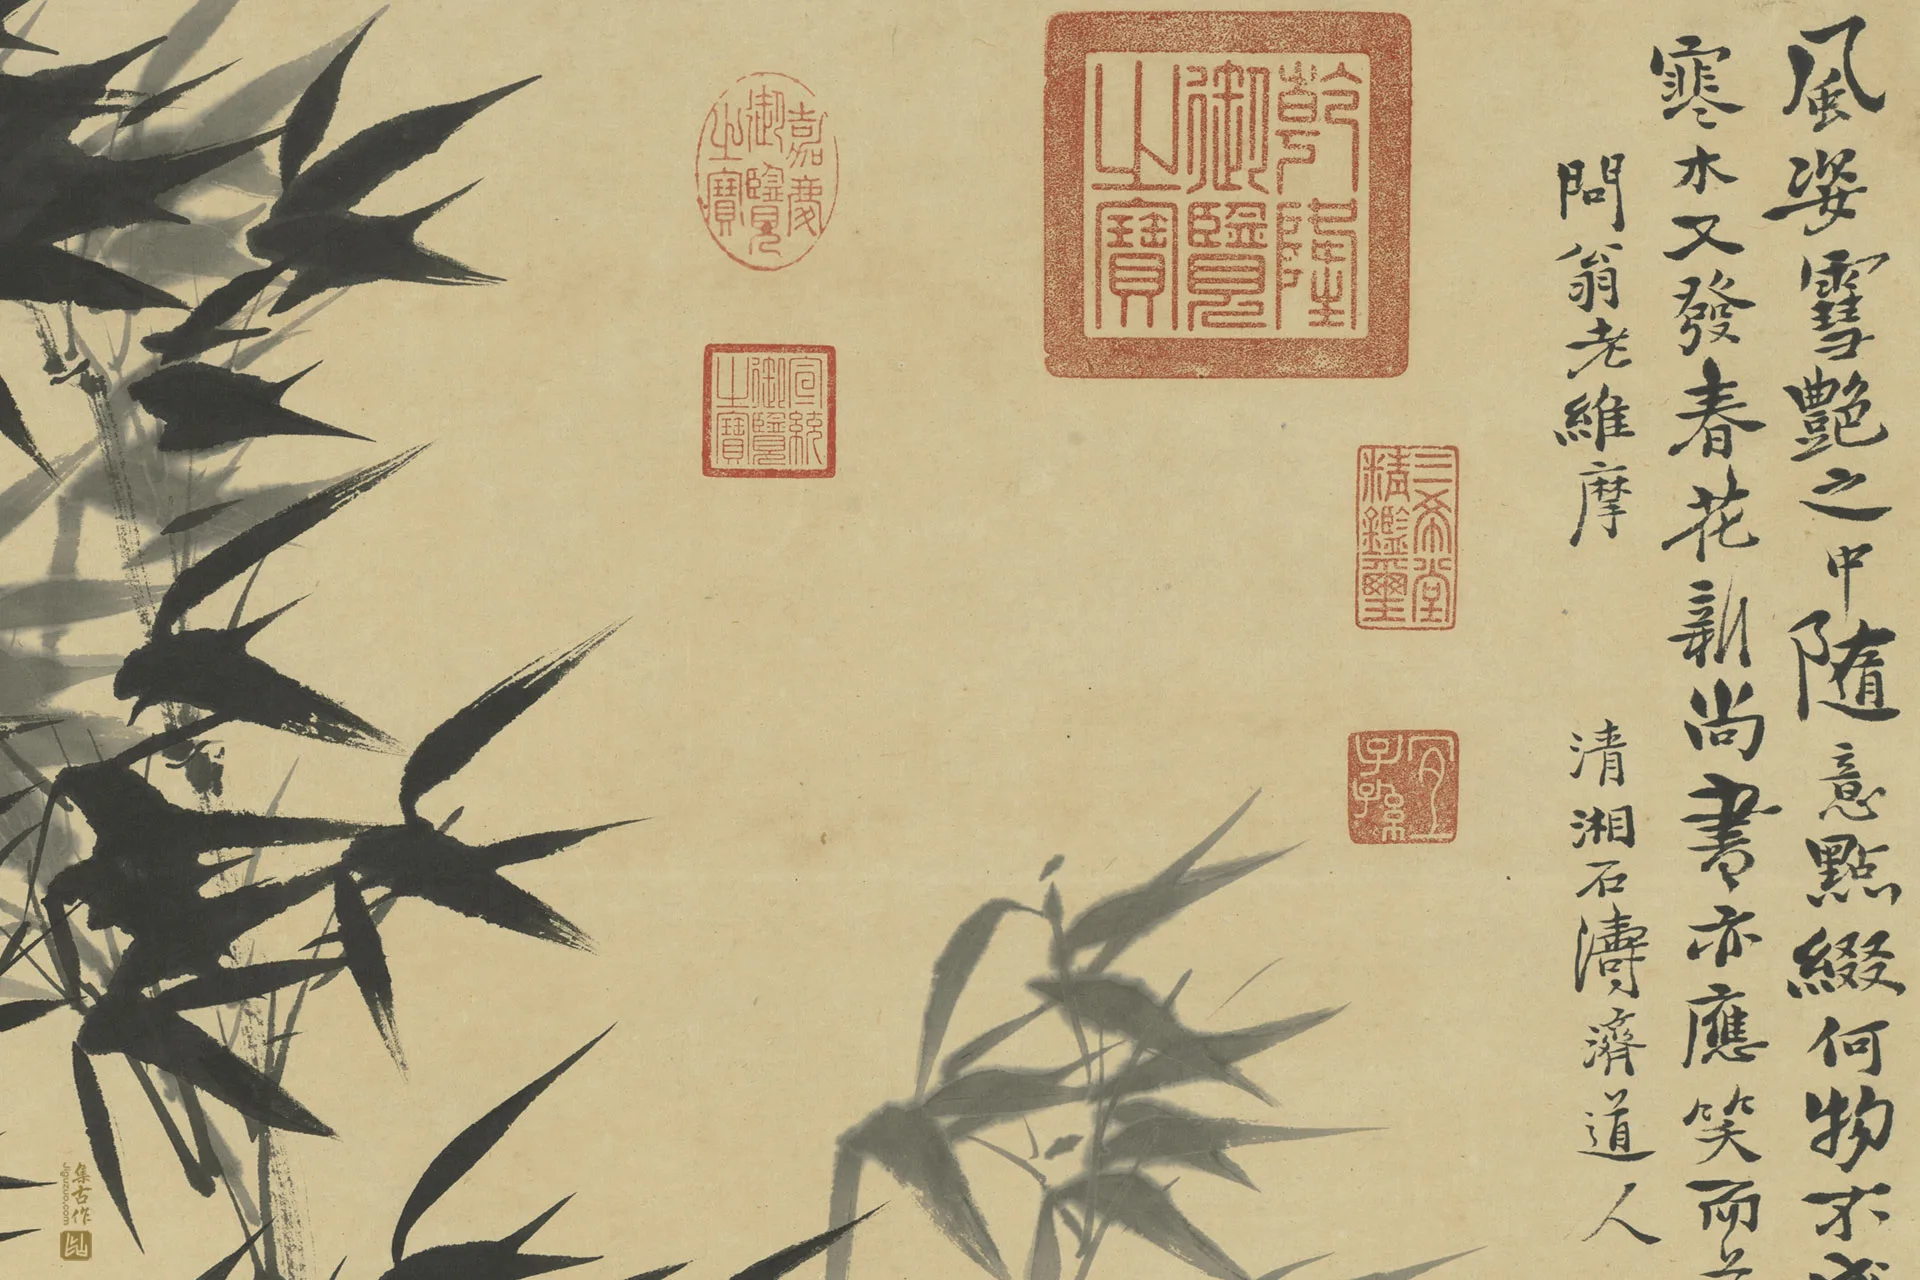 風姿雪艷之中隨意點綴何物不
寒木又發春花新尚書亦應笑而
問翁老維摩
清湘石濤濟道人
三希堂
精鑑璽
宜
子孫
乾隆
御覽
之寶
嘉慶
御覽
之寶
宣統
御覽
之寶
集古作
jiguzuo.com